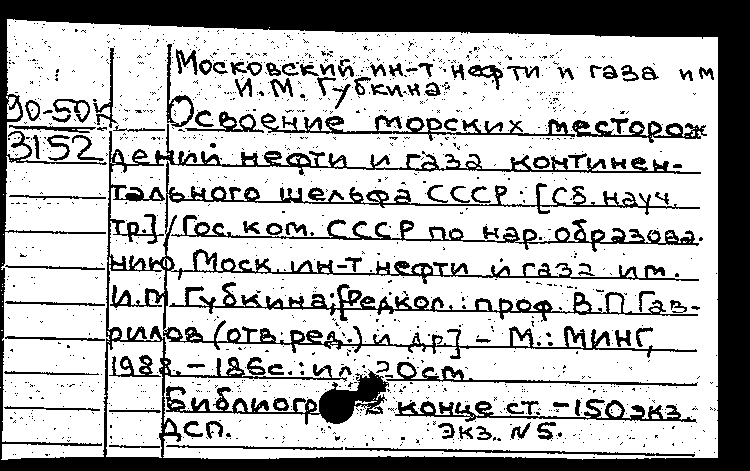 Московский ин-т нефти и газа им
И.М. Губкина
90-50К
Освоение морских месторож
3152
дений нефти и газа континен-
тального шельфа СССР : [Сб. науч.
тр.] / Гос. ком. СССР по нар. образова-
нию, Моск. ин-т нефти и газа им.
И.М. Губкина; [Редкол.: проф. В.П. Гав-
рилов (отв. ред.) и др.] - М.: МИНГ,
1988. - 186с. : ил. 20см.
Библиогр в конце ст. - 150 экз.
ДСП. экз. N5.